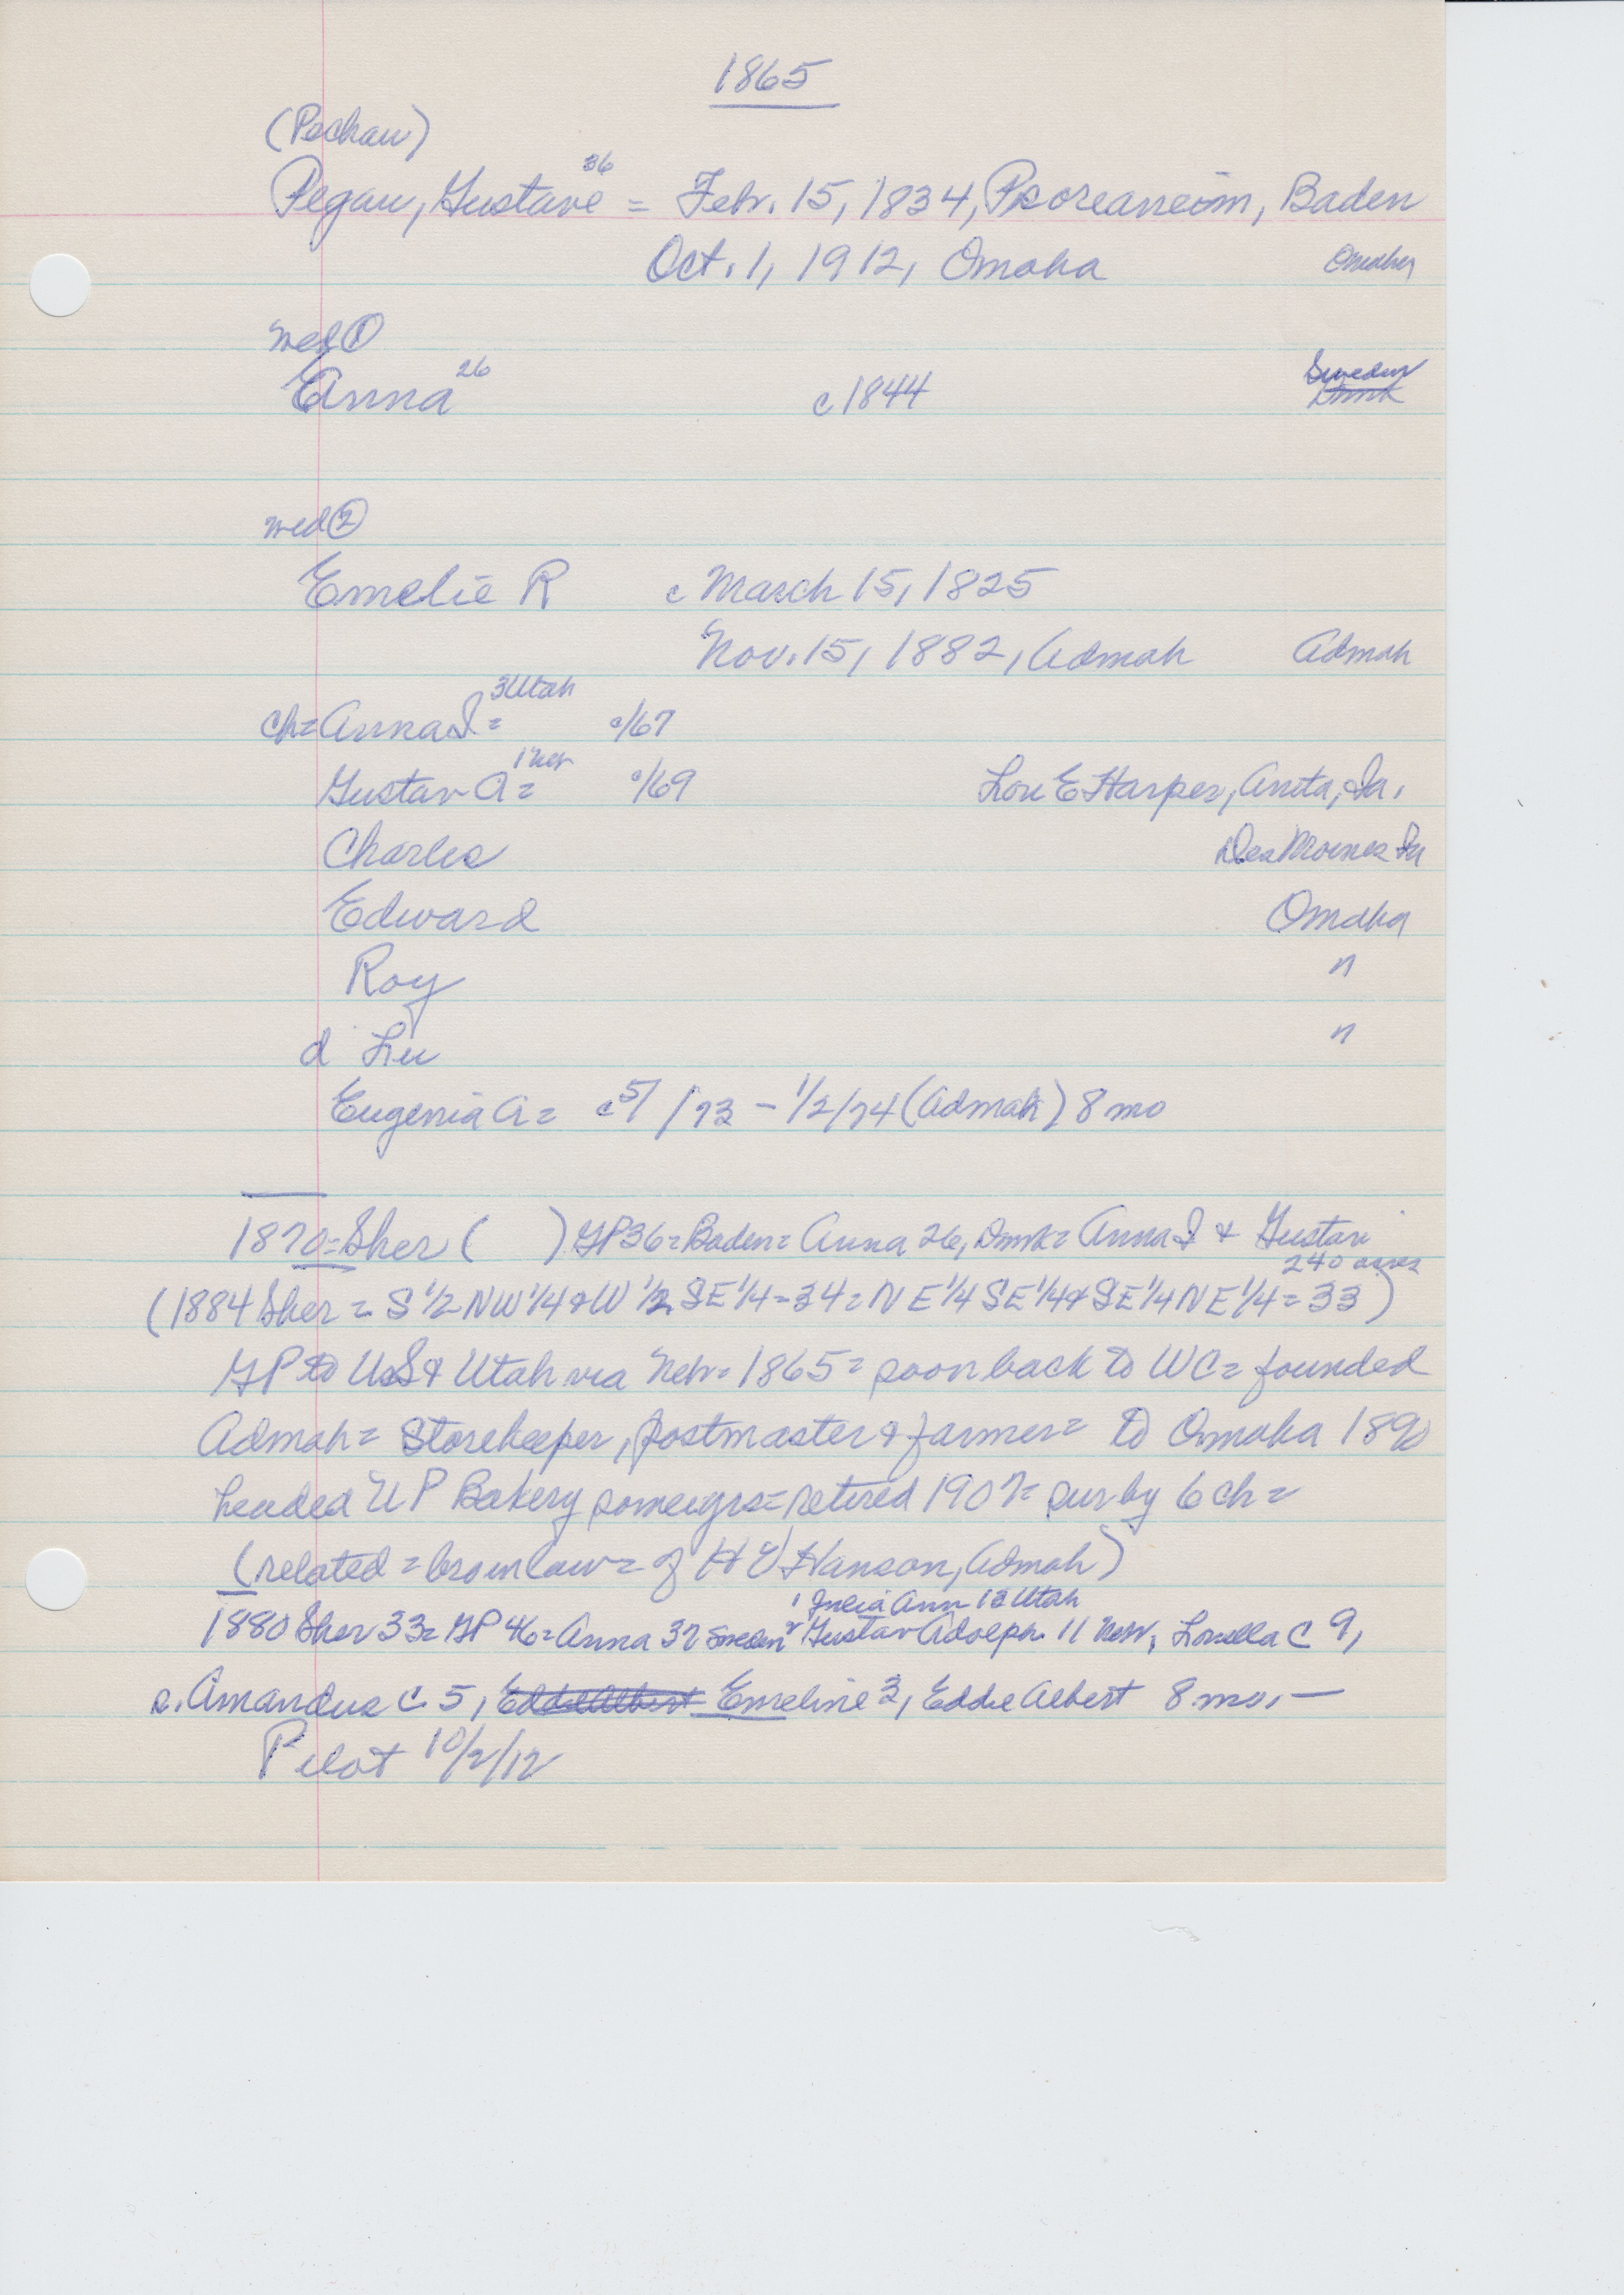 1865
(Pechau)
36
Pegau, Gustave = Febr. 15, 1834, Baden
Oct. 1, 1912, Omaha Omaha
med ①
26 Sweden
Anna c 1844 Dmk
med ②
Emelie R c March 15, 1825
Nov. 15, 1882, Admah Admah
3 Utah
ch = Anna I = c/67
1 Neb
Gustav A = c/69 Lou E Harper, Anita, Ia.
Charles Des Moines Ia
Edward Omaha
Roy "
d Lu "
Eugenia A = c 5/ /73 - 1/2/74 (Admah) 8 mo
1870 = Sher ( ) GP 36 = Baden = Anna 26, Dmk = Anna I & Gustav
240 acres
(1884 Sher = S 1/2 NW 1/4 & W 1/2 SE 1/4 - 34 = NE 1/4 SE 1/4 & SE 1/4 NE 1/4 = 33)
GP to US & Utah via Nebr. 1865 = soon back to WC = founded
Admah = Storekeeper, postmaster & farmer = to Omaha 1890
headed UP Bakery some yrs = retired 1907 = sur by 6 ch =
(related = bro in law = of H Hanson, Admah)
1 Julia Ann 12 Utah
1880 Sher 33 = GP 46 = Anna 37 Sweden 2 Gustav Adolph 11 Nebr, Louella C 9,
s. Amandus C 5, Eddie Albert Emeline 3, Eddie Albert 8 mo. —
Pilot 10/2/12